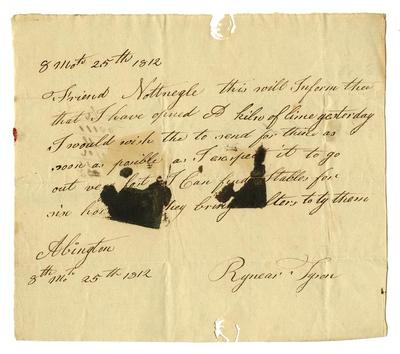 8 Mo.th 25th 1812
Friend Nottnegle this will Inform thee
that I have opned A kiln of lime yesterday
I would wish the to send for thine as
soon as posible as I expect it to go
out I Can find Stables for
six bring to ty them
Abington
8th Mo.th 25th 1812
Rynear Tyson